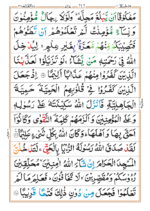 مَعْكُوفًا أَن يَبْلُغَ مَحِلَّهُ ۚ وَلَوْلَا رِجَالٌ مُّؤْمِنُونَ
وَنِسَاءٌ مُّؤْمِنَاتٌ لَّمْ تَعْلَمُوهُمْ أَن تَطَئُوهُمْ
فَتُصِيبَكُم مِّنْهُم مَّعَرَّةٌ بِغَيْرِ عِلْمٍ ۖ لِّيُدْخِلَ
اللَّهُ فِي رَحْمَتِهِ مَن يَشَاءُ ۚ لَوْ تَزَيَّلُوا لَعَذَّبْنَا
الَّذِينَ كَفَرُوا مِنْهُمْ عَذَابًا أَلِيمًا إِذْ جَعَلَ
الَّذِينَ كَفَرُوا فِي قُلُوبِهِمُ الْحَمِيَّةَ حَمِيَّةَ
الْجَاهِلِيَّةِ فَأَنزَلَ اللَّهُ سَكِينَتَهُ عَلَىٰ رَسُولِهِ
وَعَلَى الْمُؤْمِنِينَ وَأَلْزَمَهُمْ كَلِمَةَ التَّقْوَىٰ وَكَانُوا
أَحَقَّ بِهَا وَأَهْلَهَا ۚ وَكَانَ اللَّهُ بِكُلِّ شَيْءٍ عَلِيمًا
لَّقَدْ صَدَقَ اللَّهُ رَسُولَهُ الرُّؤْيَا بِالْحَقِّ ۖ لَتَدْخُلُنَّ
الْمَسْجِدَ الْحَرَامَ إِن شَاءَ اللَّهُ آمِنِينَ مُحَلِّقِينَ
رُءُوسَكُمْ وَمُقَصِّرِينَ لَا تَخَافُونَ ۖ فَعَلِمَ مَا لَمْ
تَعْلَمُوا فَجَعَلَ مِن دُونِ ذَٰلِكَ فَتْحًا قَرِيبًا